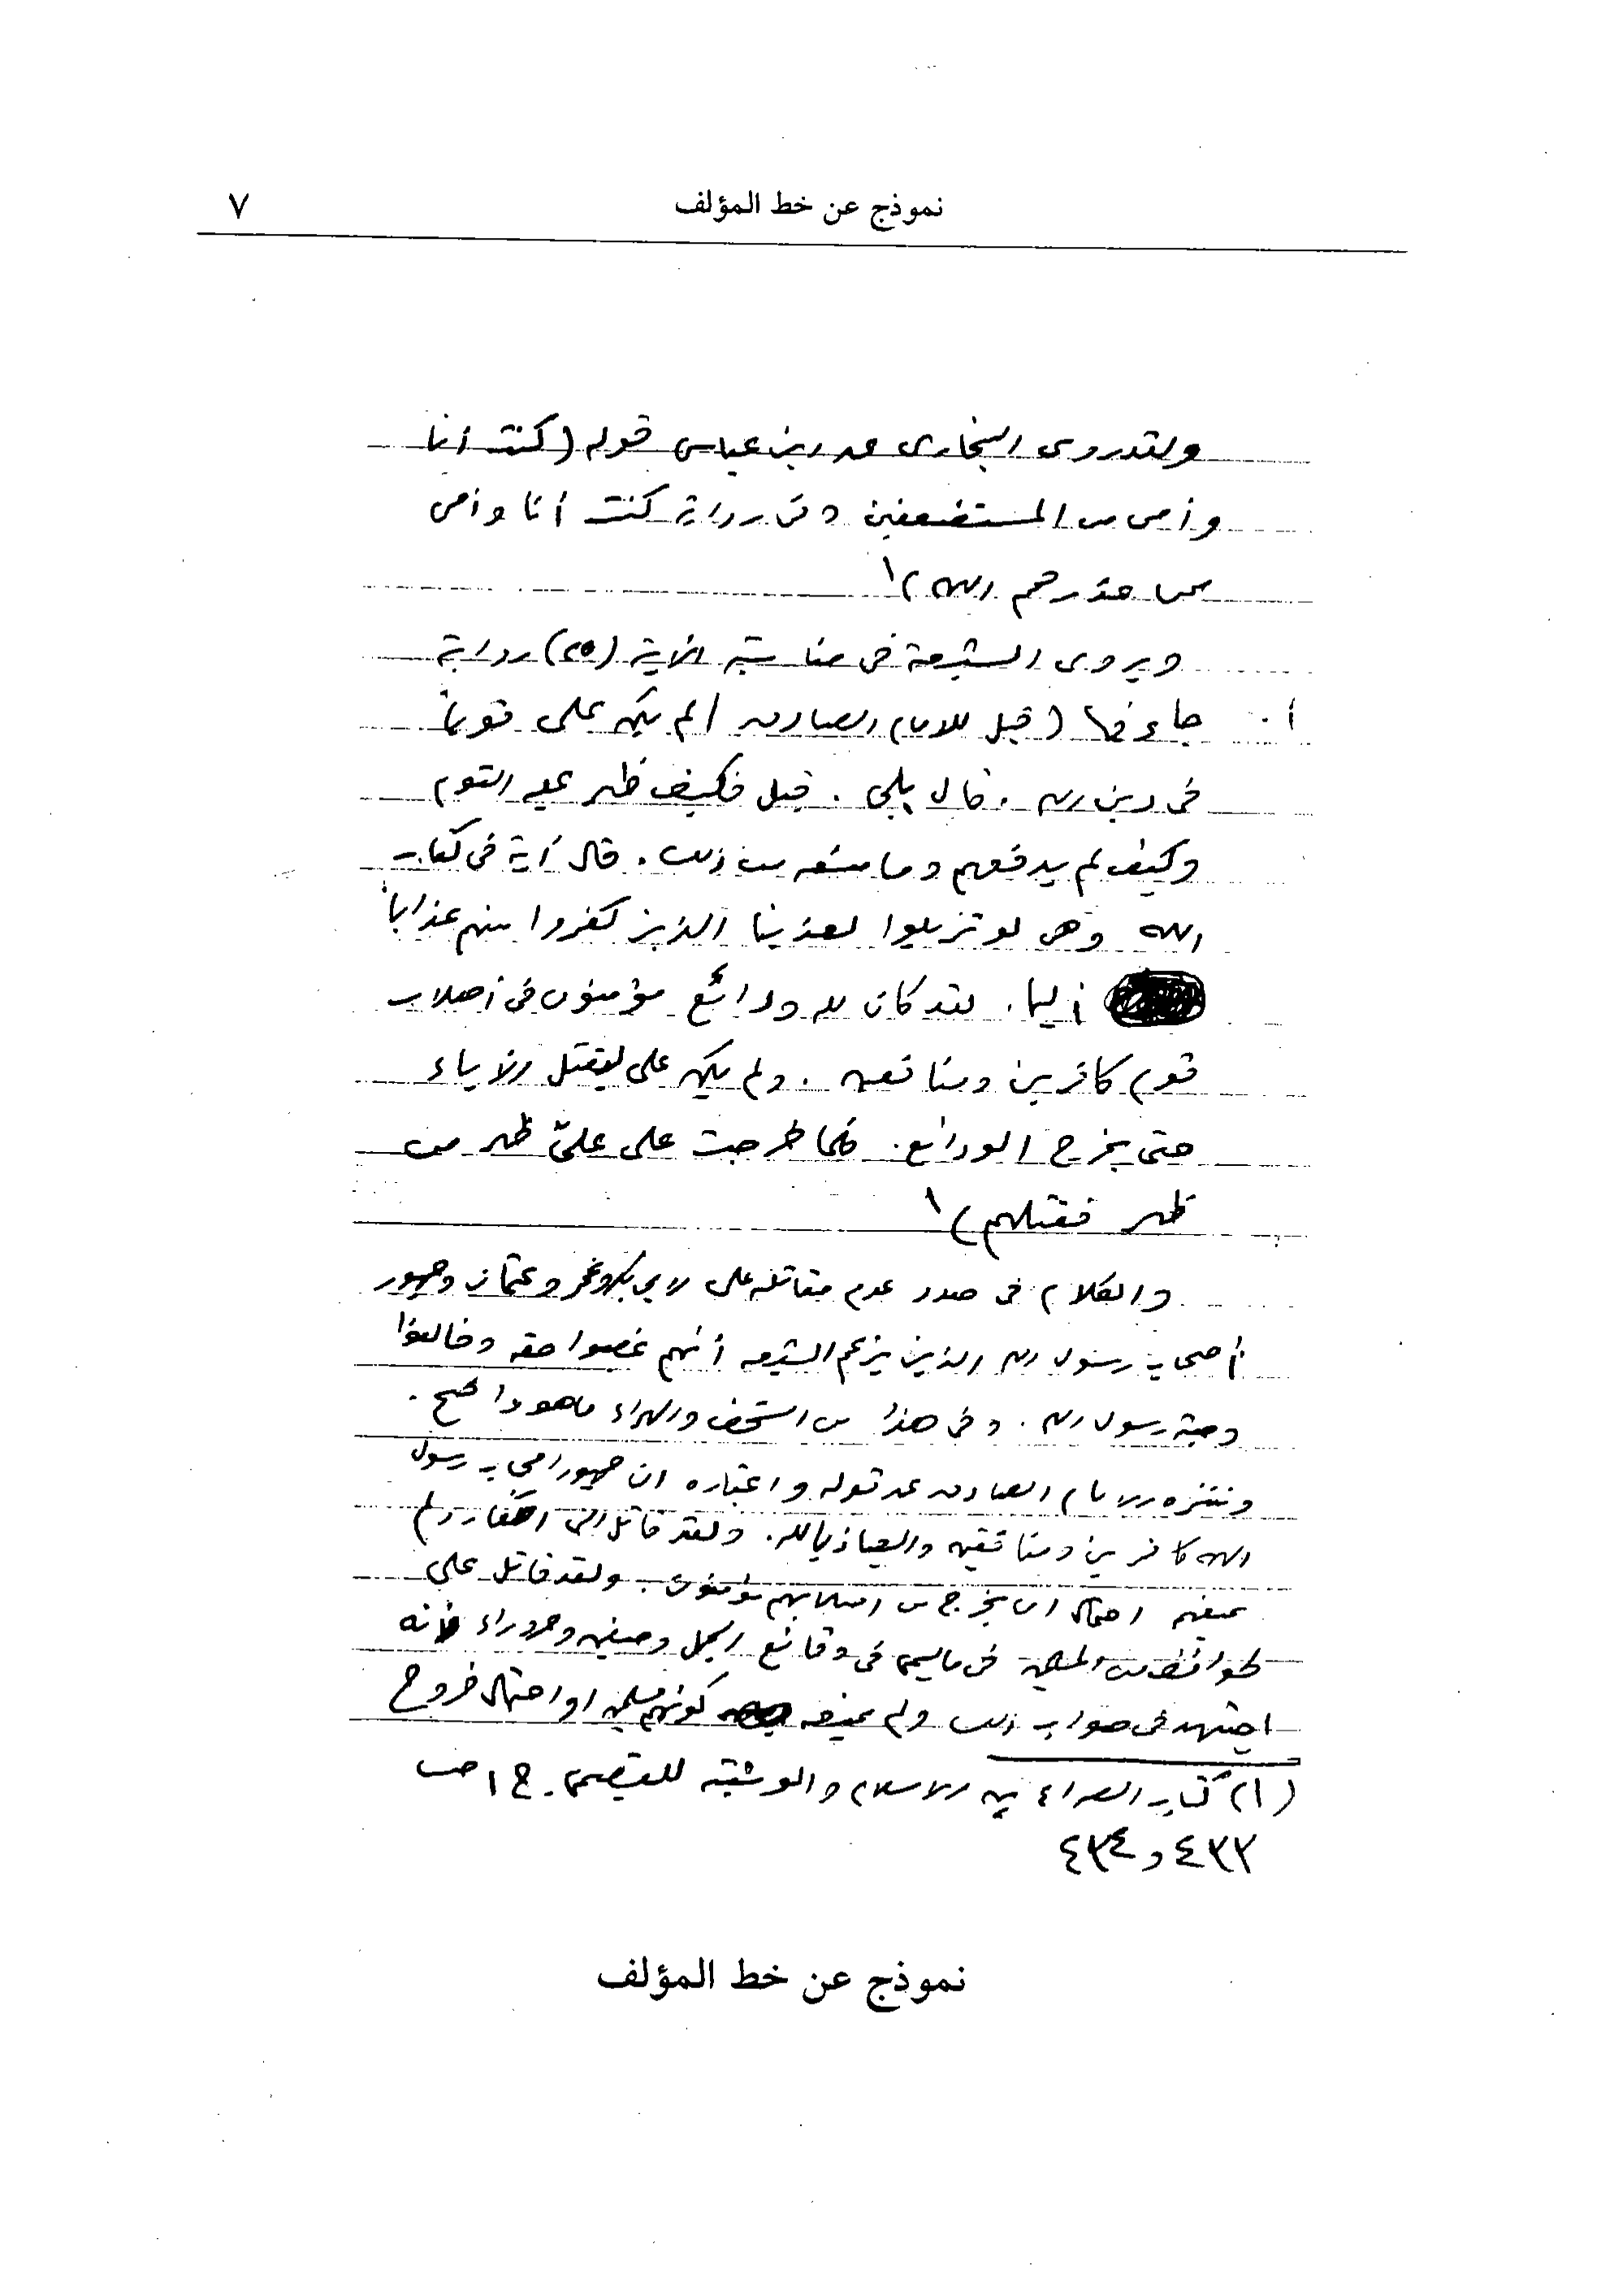 نموذج عن خط المؤلف
٧
ولقد روى البخاري عن ابن عباس قوله (كنت أنا
وأمي من المستضعفين وفي رواية كنت أنا وأمي
ممن عذرهم الله)١
ويروي الشيعة في مناسبة الآية (٢٥) رواية
جاء فيها (قيل للامام الصادق ألم يكن علي قوياً
في دين الله . قال بلى . قيل فكيف ظهر عليه القوم
وكيف لم يدفعهم وما منعه من ذلك . قال آية في كتاب
الله وهي لو تزيلوا لعذبنا الذين كفروا منهم عذاباً
أليما . لقد كان لله ودائع مؤمنون في أصلاب
قوم كافرين ومنافقين . ولم يكن علي ليقتل الآباء
حتى يخرج الودائع . فلما خرجت على عليّ ظهر من
ظهر فقتلهم)١
والكلام في صدد عدم مقاتلة علي لابي بكر وعمر وعثمان وجمهور
أصحاب رسول الله الذين يزعم الشيعة أنهم غصبوا حقه وخالفوا
وصية رسول الله . وفي هذا من السخف والهراء ما هو واضح .
وننزه الامام الصادق عن قوله واعتباره ان جمهور اصحاب رسول
الله كافرين ومنافقين والعياذ بالله . ولقد قاتل النبي الكفار ولم
يمنعه احتمال ان يخرج من اصلابهم مؤمنون . ولقد قاتل علي
طوائف من المسلمين في ما يسمى في وقائع الجمل وصفين وحروراء لأنه
اجتهد في صواب ذلك ولم يمنعه كونهم مسلمين او احتمال خروج
(١) كتاب الصراع بين الاسلام والوثنية للقصيمي ج ١ ص
٤٣٣ و ٤٣٤
نموذج عن خط المؤلف